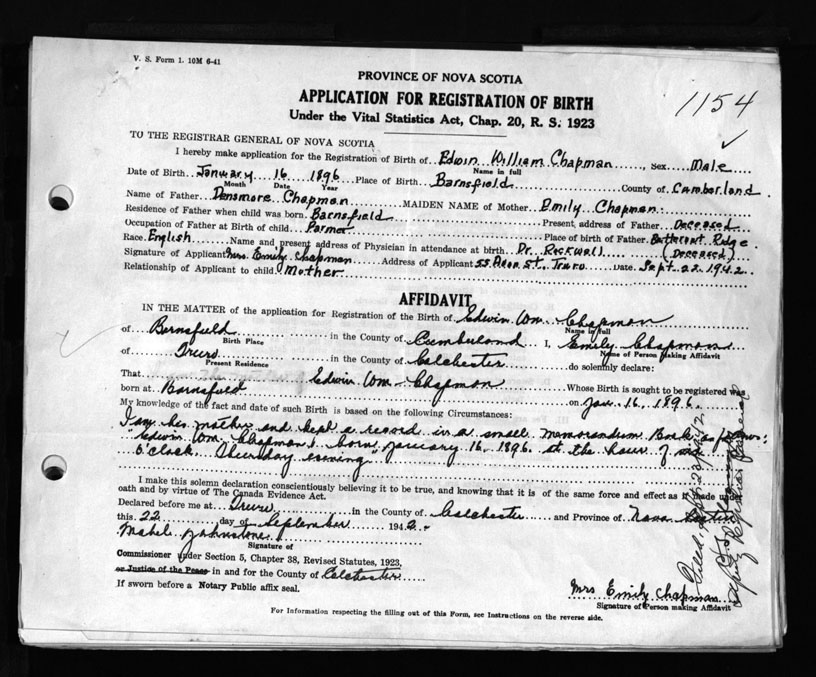 V. S. Form 1. 10M 6-41
PROVINCE OF NOVA SCOTIA
APPLICATION FOR REGISTRATION OF BIRTH
Under the Vital Statistics Act, Chap. 20, R. S. 1923
1154
TO THE REGISTRAR GENERAL OF NOVA SCOTIA
I hereby make application for the Registration of Birth of Edwin William Chapman, Sex Male
Name in full
Date of Birth January 16 1896 Place of Birth Barnsfield County of Cumberland
Month Date Year
Name of Father Densmore Chapman MAIDEN NAME of Mother Emily Chapman
Residence of Father when child was born Barnsfield Present address of Father Deceased
Occupation of Father at Birth of child Farmer Place of birth of Father Ridge
Race English Name and present address of Physician in attendance at birth Dr. Rockwell (Deceased)
Signature of Applicant Mrs. Emily Chapman Address of Applicant 55 St. Truro Date Sept. 22 1942
Relationship of Applicant to child Mother
AFFIDAVIT
IN THE MATTER of the application for Registration of the Birth of Edwin Wm. Chapman
Name in full
of Barnsfield in the County of Cumberland I, Emily Chapman
Birth Place Name of Person Making Affidavit
of Truro in the County of Colchester do solemnly declare:
Present Residence
That Edwin Wm. Chapman Whose Birth is sought to be registered was
born at Barnsfield on Jan. 16, 1896
My knowledge of the fact and date of such Birth is based on the following Circumstances:
I am his mother and kept a record in a small Memorandum Book as follows:
"Edwin Wm. Chapman born January 16, 1896 at the hour of nine
o'clock Thursday evening"
I make this solemn declaration conscientiously believing it to be true, and knowing that it is of the same force and effect as if made under
oath and by virtue of The Canada Evidence Act.
Declared before me at Truro in the County of Colchester and Province of Nova Scotia
this 22 day of September 1942
Mabel Johnstone
Signature of
Commissioner under Section 5, Chapter 38, Revised Statutes, 1923,
or Justice of the Peace in and for the County of Colchester
If sworn before a Notary Public affix seal.
Mrs Emily Chapman
Signature of Person making Affidavit
For Information respecting the filling out of this Form, see Instructions on the reverse side.